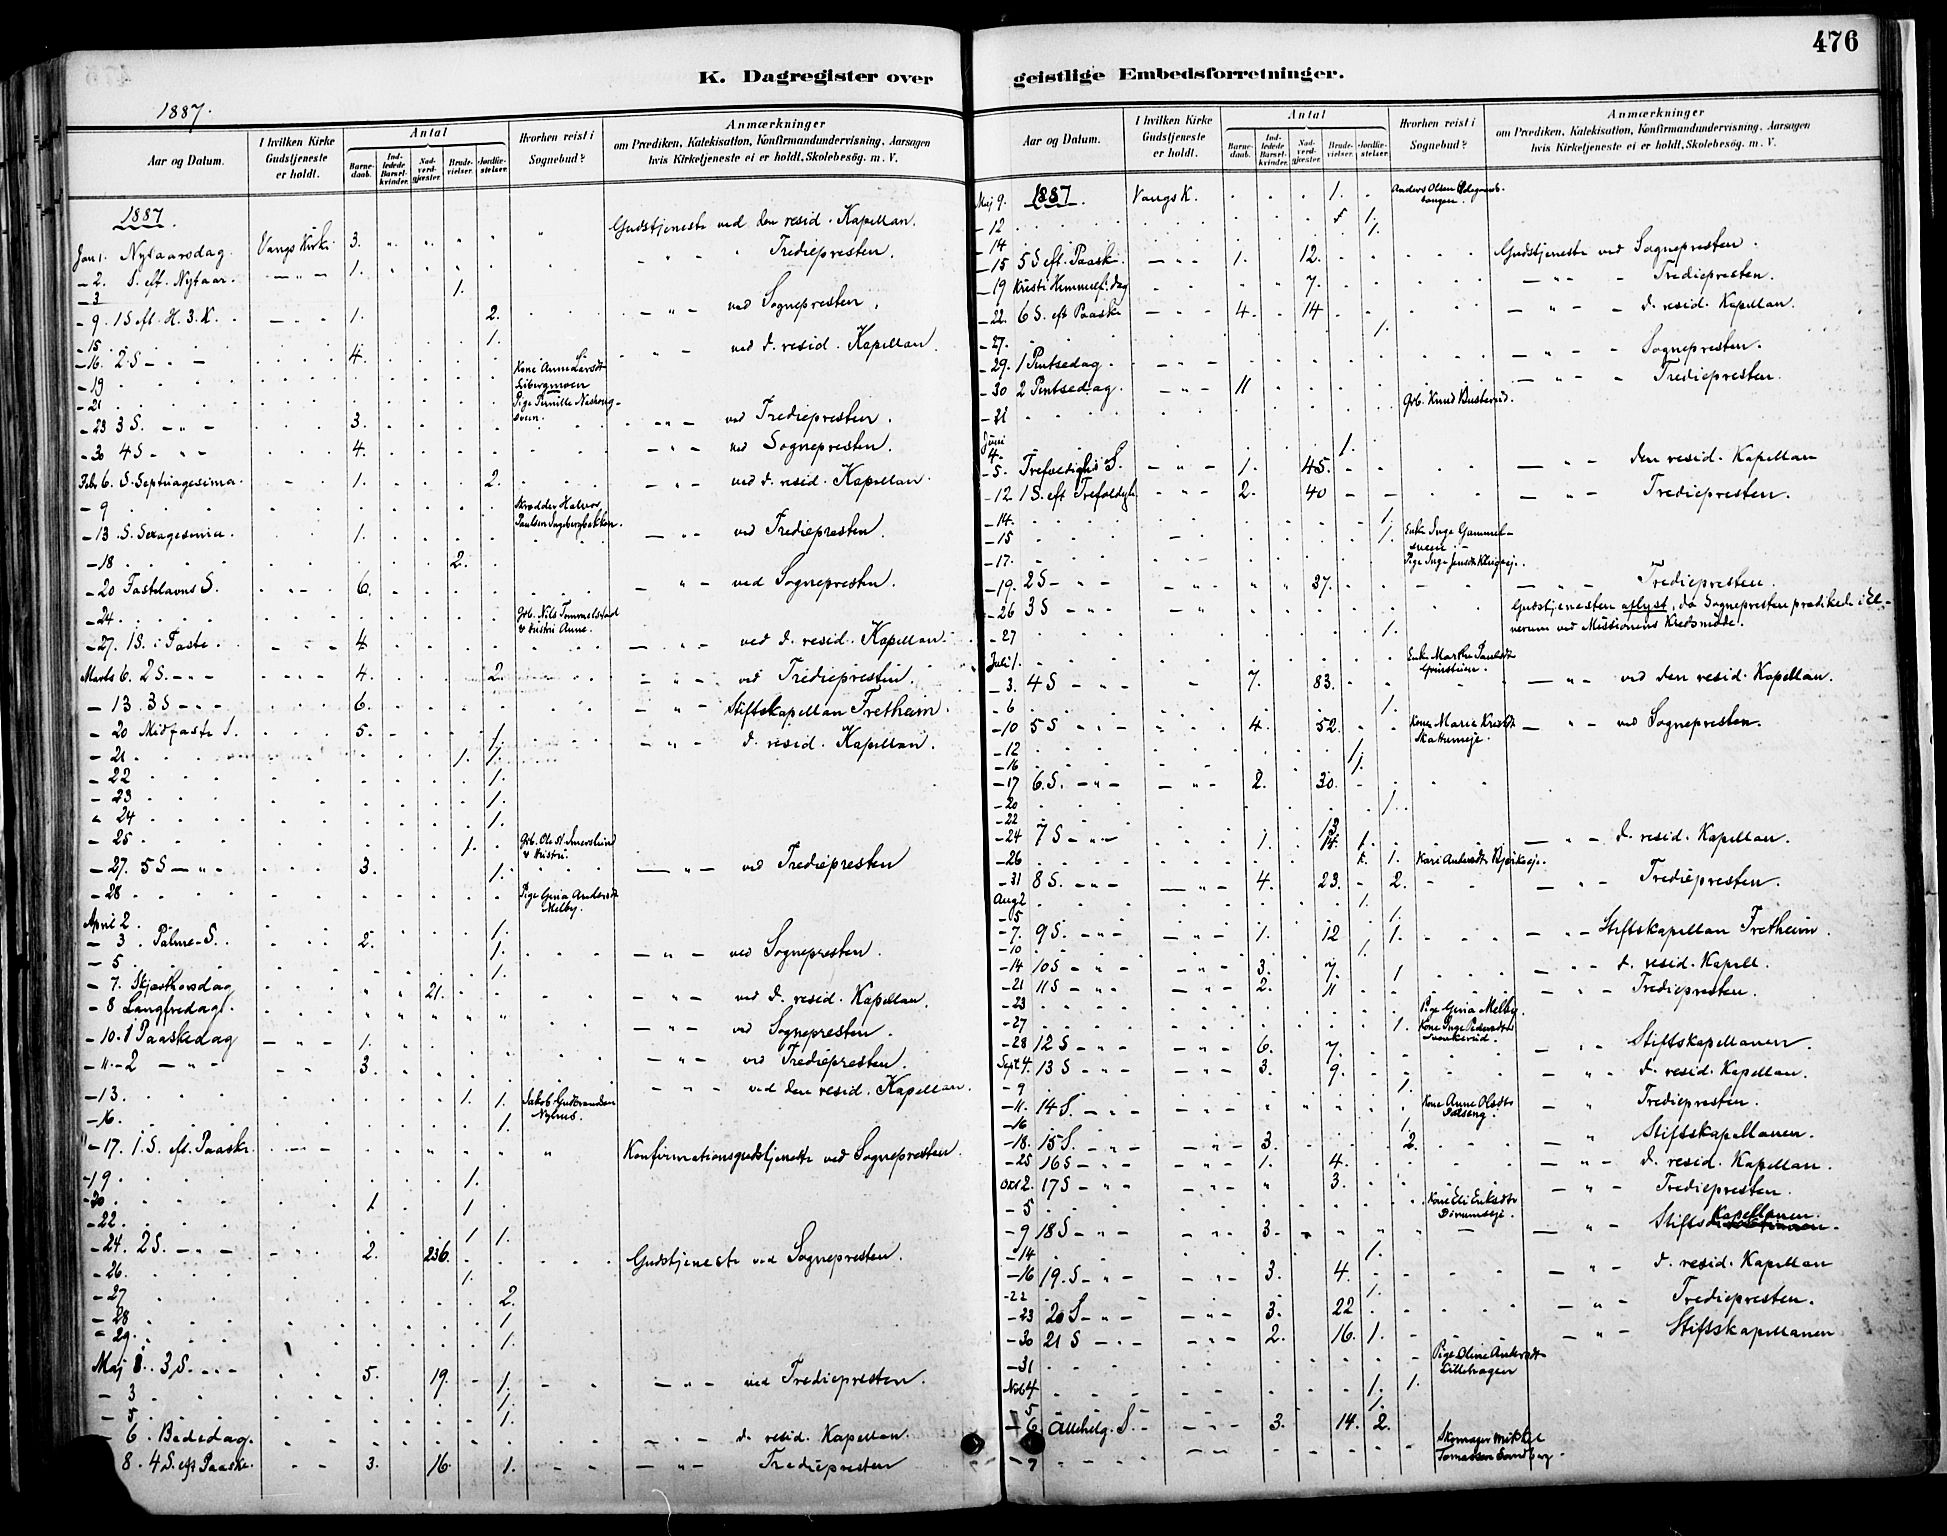 476
K. Dagregister over geistlige Embedsforretninger.
1887.
Aar og Datum.
I hvilken Kirke Gudstjeneste er holdt.
Antal
Barnedaab.
Indledede Barselkvinder.
Nadverdgjester.
Brudevielser.
Jordfæstelser.
Hvorhen reist i Sognebud?
Anmærkninger
om Prædiken, Katekisation, Konfirmandundervisning, Aarsagen
hvis Kirketjeneste ei er holdt, Skolebesøg. m. V.
1887.
Gudstjeneste ved den resid. Kapellan.
Jan 1. Nytaarsdag Vangs Kirke 3.
Trediepresten.
- 2. S. eft. Nytaar. 1.
- 3 1.
ved Sognepresten.
- 9. 1 S. eft. H. 3. K. 1. 2.
- 15 1.
ved d. resid. Kapellan.
- 16. 2 S - 4.
- 19
- 21
- 23 3 S. - " - 3. ved Trediepresten.
- 30 4 S - 4. ved Sognepresten.
Febr 6. S. Septuagesima. 1. 2. ved d. resid. Kapellan.
- 9 Skrædder Halvor
- 13 S. Sexagesima. 1. ved Trediepresten.
- 18 2.
- 20 Fastelavns S. 6. ved Sognepresten.
- 24.
- 27. 1 S. i Faste. 4 ved d. resid. Kapellan.
Marts 6. 2 S. - 4. 2 ved Tredipresten.
- 13. 3 S - 6. Stiftskapellan Fretheim.
- 20 Midfaste S. 5. 1. d. resid. Kapellan.
- 21 1. 1.
- 22 1.
- 23 1.
- 24 1.
- 25 1.
- 27. 5 S - " - 3. 1. ved Tredipresten
- 28 Pige Gina Andersdt Melby.
April 2 1.
- 3. Palme-S. 2. 1. ved Sognepresten.
- 5 1.
- 7. Skjærthorsdag 21. ved d. resid. Kapellan.
- 8 Langfredag. ved Sognepresten.
- 10. 1 Paaskedag 1. ved Tredipresten.
- 11. - 2 - " - 3. ved den resid. Kapellan.
- 13. 1. 1. Jakob Gudbrandsen
- 16. 1.
- 17. 1. S. eft. Paaske. Konfirmationsgudstjeneste ved Sognepresten.
- 19 1.
- 20 1 1
- 22. 1 1.
- 24. 2 S. - " - 2. 236. Gudstjeneste ved Sognepresten.
- 26. 1.
- 27 2.
- 28 1
- 29. 1.
Maj 1. 3 S. 5. 19. 1. ved Tredipresten.
- 3 1.
- 5 1.
- 6. Bededag. d. resid. Kapellan.
8. 4 S. eft Paaske. 3. 16. 1. Tredipresten
Aar og Datum.
I hvilken Kirke Gudstjeneste er holdt.
Antal
Barnedaab.
Indledede Barselkvinder.
Nadverdgjester.
Brudevielser.
Jordfæstelser.
Hvorhen reist i Sognebud?
Anmærkninger
om Prædiken, Katekisation, Konfirmandundervisning, Aarsagen
hvis Kirketjeneste ei er holdt, Skolebesøg. m. V.
Maj 9. 1887. Vangs K. 1.
- 12 1.
- 14 1.
- 15 5 S eft. Paaske 1. 12. Gudstjeneste ved Sognepresten.
- 19 Kristi Himmelf. dag 7. Tredipresten.
- 22. 6 S. eft Paaske 4. 14 d. resid. Kapellan.
- 27. 1.
- 29. 1 Pintsedag. Sognepresten.
- 30 2 Pintsedag. 11 Tredipresten.
- 31
Juni 4. 1.
- 5. Trefoldigh. S. 1. 45. den resid. Kapellan
- 12. 1 S. eft Trefoldigh. 2. 40 Tredipresten.
- 14. 1.
- 15 1.
- 17.
- 19. 2 S - 37. Tredipresten.
- 26 3 S Gudstjenesten aflyst, da Sognepresten prædikede i El-
verum ved Missionens Kredsmøde.
- 27 1.
Juli 1.
- 3. 4 S 7. 83. ved den resid. Kapellan.
- 6 1.
- 10 5 S 4. 52. ved Sognepresten.
- 12 1.
- 16 1.
- 17 6. S. 2. 30.
- 20 1.
- 22
- 24 7 S 1. 1. d. resid. Kapellan.
- 26 1.
- 31 8 S. 4. 23. 2. Tredipresten.
Aug 2 1.
- 5 1.
- 7. 9 S. 1. 12 1. Stiftskapellan Fretheim.
- 10 1
- 14 10 S 3. 7. 1 d. resid. Kapell.
- 21 11 S 2. 11 Tredipresten.
- 23 Pige Gina Melby.
- 27 1.
- 28 12 S 6. 7. Stiftskapellanen.
Sept 4. 13 S 3. 9. d. resid. Kapellan.
- 9 1.
- 11. 14 S. Tredipresten.
- 16 1.
- 18. 15 S. 3. 2. Stiftskapellanen.
- 25 16 S 1. 4. d. resid. Kapellan.
Okt 2. 17 S 3. Tredipresten.
- 5
- 9 18 S 3. Kapellanen.
- 14 1.
- 16 19. S 3. 4. d. resid. Kapellan
- 22 1.
- 23 20 S 3. 22 Tredipresten.
- 30 21 S 2. 16. 1. Stiftskapellanen
- 31
Nob 4 1. 1.
5 1.
- 6 Allehelg. S. 3. 14. 2.
- 7 Skomager Mikkel